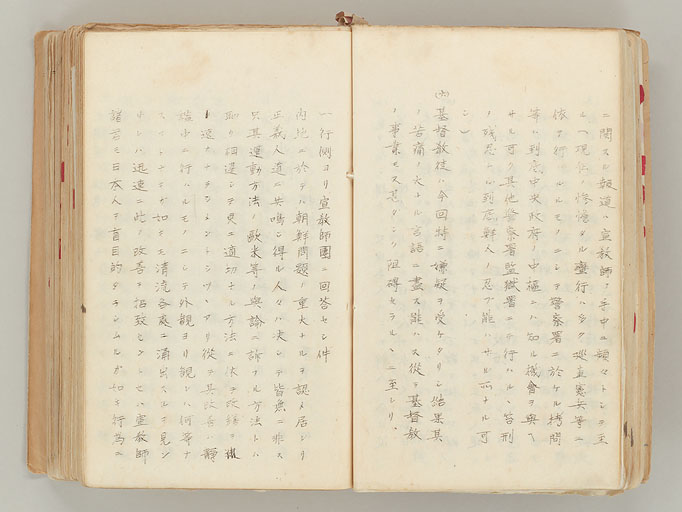 ニ関スル報道ハ宣教師ノ手中ニ頻々トシテ至
ル「現　　惨憺タル蛮行ハ多ク巡査憲兵等ニ
依テ行ハルルモノニシテ警察署ニ於ケル拷問
等ハ到底中央政府ノ中枢ニハ知ル機会ヲ与ヘ
サル可ク其他警察署監獄署ニテ行ハルヽ笞刑
ノ残忍ナル到底鮮人ノ忍フ能ハサル所ナル可
シ」
(六)基督教徒ハ今回特ニ嫌疑ヲ受ケタリシ結果其
ノ苦痛ノ大ナル言語ニ尽ス能ハス従テ基督教
ノ事業モ又甚タシク阻碍セラルヽニ至レリ。
一行側ヨリ宣教師団ニ回答セシ件
内地ニ於テハ朝鮮問題ノ重大ナルヲ認メ居レリ
正義人道ニ共鳴シ得ル人々ハ決シテ皆無ニ非ス
只其運動方法ノ欧米等ノ与論ニ訴フル方法トハ
自ラ相違シヲ更ニ適切ナル方法ニ依テ改善ヲ
ト遂ケ　　シツヽアリ従テ其改善ハ静
謐中ニ行ハルモノニシテ外観ヨリ観レハ何等ナ
スコトナキカ如キモ清流各処ニ湧出スルヲ見ン
申シハ迅速ニ此ノ改善ヲ招致セントセハ宣教師
諸君モ日本人ヲ盲目的タラシムルカ如キ行為ニ